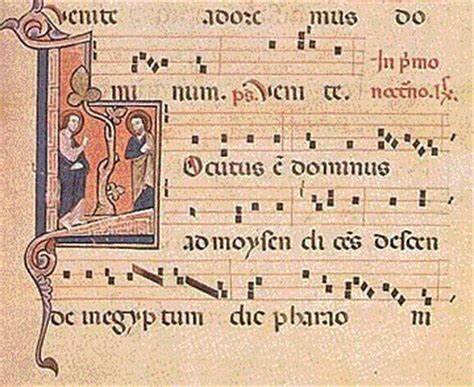 Venite adore mus do
In p̄mo
mi num. ps. Veni te. noct̄no.
Locutus ē dominus
ad moysen di cēs descen
de in egyptum dic pharao ni